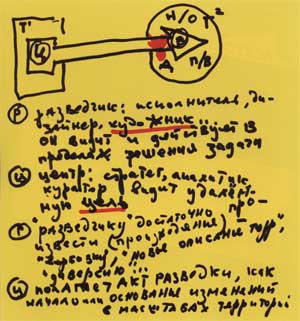 Т'
Ц
Н/О
Т²
Р
Д
П/В
Р разведчик: исполнитель, ди-
зайнер, худ-жник
он видит и действует в
пределах решения задачи
Ц центр: стратег, аналитик
куратор видит удалён-
ную цель
Г "разведчику" достаточно про-
извести (происхождения)
"вербовку", "новое описание терр",
"доверение"!!!
Ц полагает акт разведки, как
начало или основанье изменений
в масштабах территорий